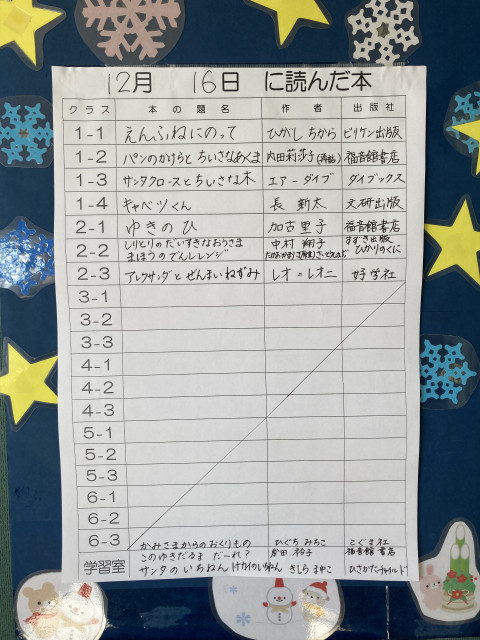 12月 16日 に読んだ本
クラス 本の題名 作者 出版社
1-1 えんふねにのって ひがし ちから ビリケン出版
1-2 パンのかけらと ちいさなあくま 内田莉莎子(再話) 福音館書店
1-3 サンタクロースとちいさな木 エアーダイブ ダイブックス
1-4 キャベツくん 長 新太 文研出版
2-1 ゆきのひ 加古里子 福音館書店
2-2 しりとりのだいすきなおうさま 中村 翔子 すずき出版
まほうのでんしレンジ ひかりのくに
2-3 アレクサンダとぜんまいねずみ レオ=レオニ 好学社
3-1
3-2
3-3
4-1
4-2
4-3
5-1
5-2
5-3
6-1
6-2
6-3
かみさまからのおくりもの ひぐち みちこ こぐま社
このゆきだるま だーれ? 岸田 衿子 福音館書店
学習室 サンタのいちねん トナカイのいちねん きしら まゆこ ひさかたチャイルド